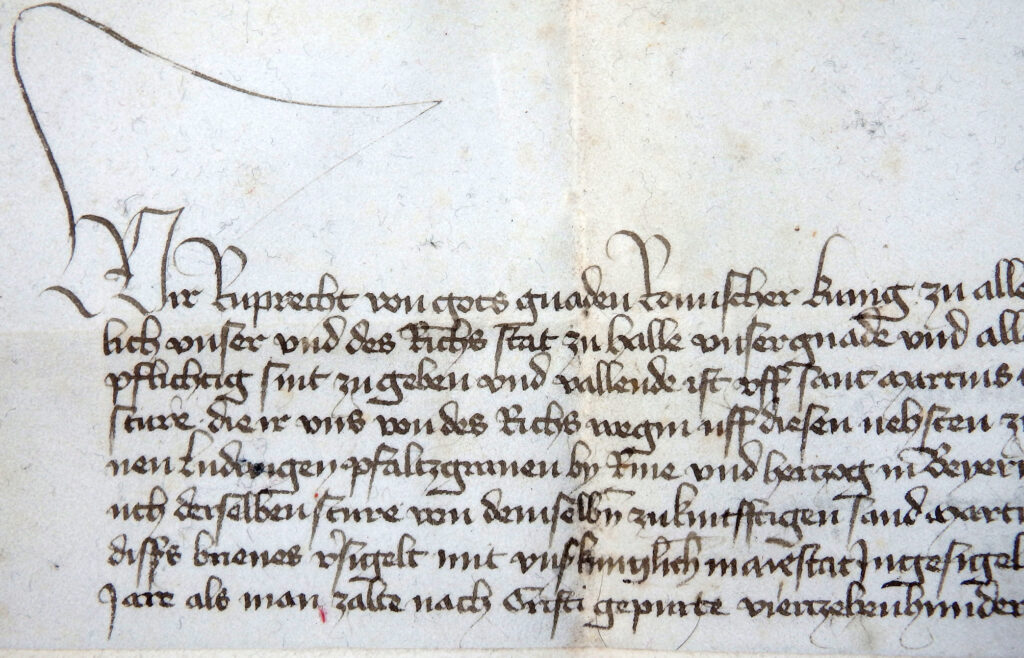 Wir Ruprecht von gots gnaden Romischer kunig zu alle
lich unser und des Richs stat zu halle unser gnade und all
pflichtig sint zu geben und vallende ist uff sant martins
sture die ir uns von des Richs wegin uff diesen nehsten zu
nen ludwigen pfaltzgraven by Rine und hertzog in Beyern
uch derselben sture von demselbn zukunfftigen sand martin
diss brieves vsigelt mit uns kuniglich maiestat Ingesigel
Jare als man zalte nach Cristi gepurte viertzehenhunder